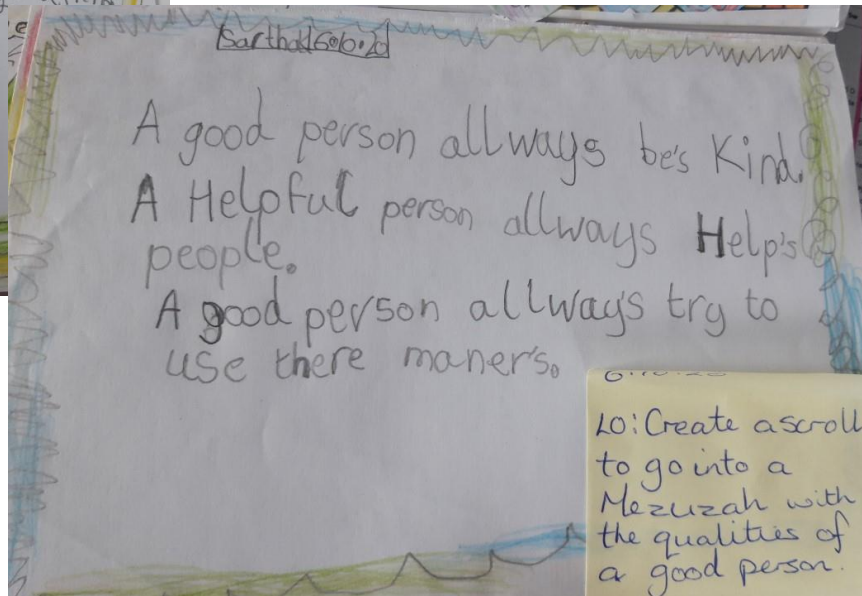 Sarthak 6.10.20
A good person allways be's Kind.
A Helpful person allways Help's
people.
A good person allways try to
use there maner's.
LO: Create a scroll
to go into a
Mezuzah with
the qualities of
a good person.